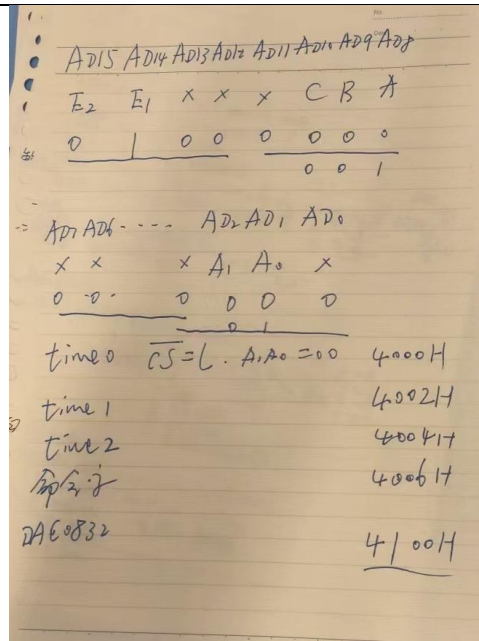 AD15 AD14 AD13 AD12 AD11 AD10 AD9 AD8
E2 E1 × × × C B A
0 1 0 0 0 0 0 0
0 0 1
AD7 AD6 ---- AD2 AD1 AD0
× × × A1 A0 ×
0 0 0 0 0 0
0 1
time0 CS=L. A1A0=00 4000H
time1 4002H
time2 4004H
命令字 4006H
DAC0832 4100H